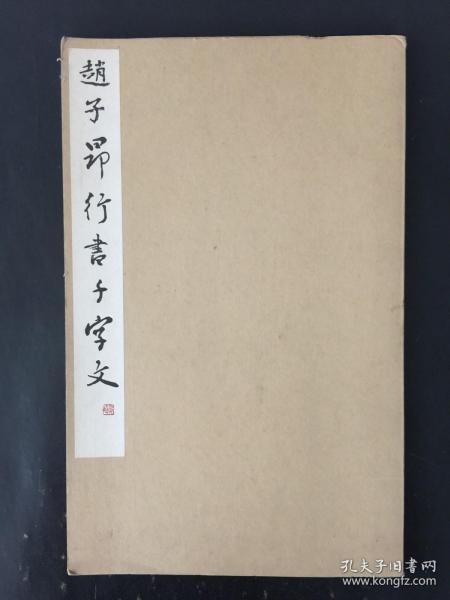 趙子昂行書千字文
孔夫子旧书网
www.kongfz.com